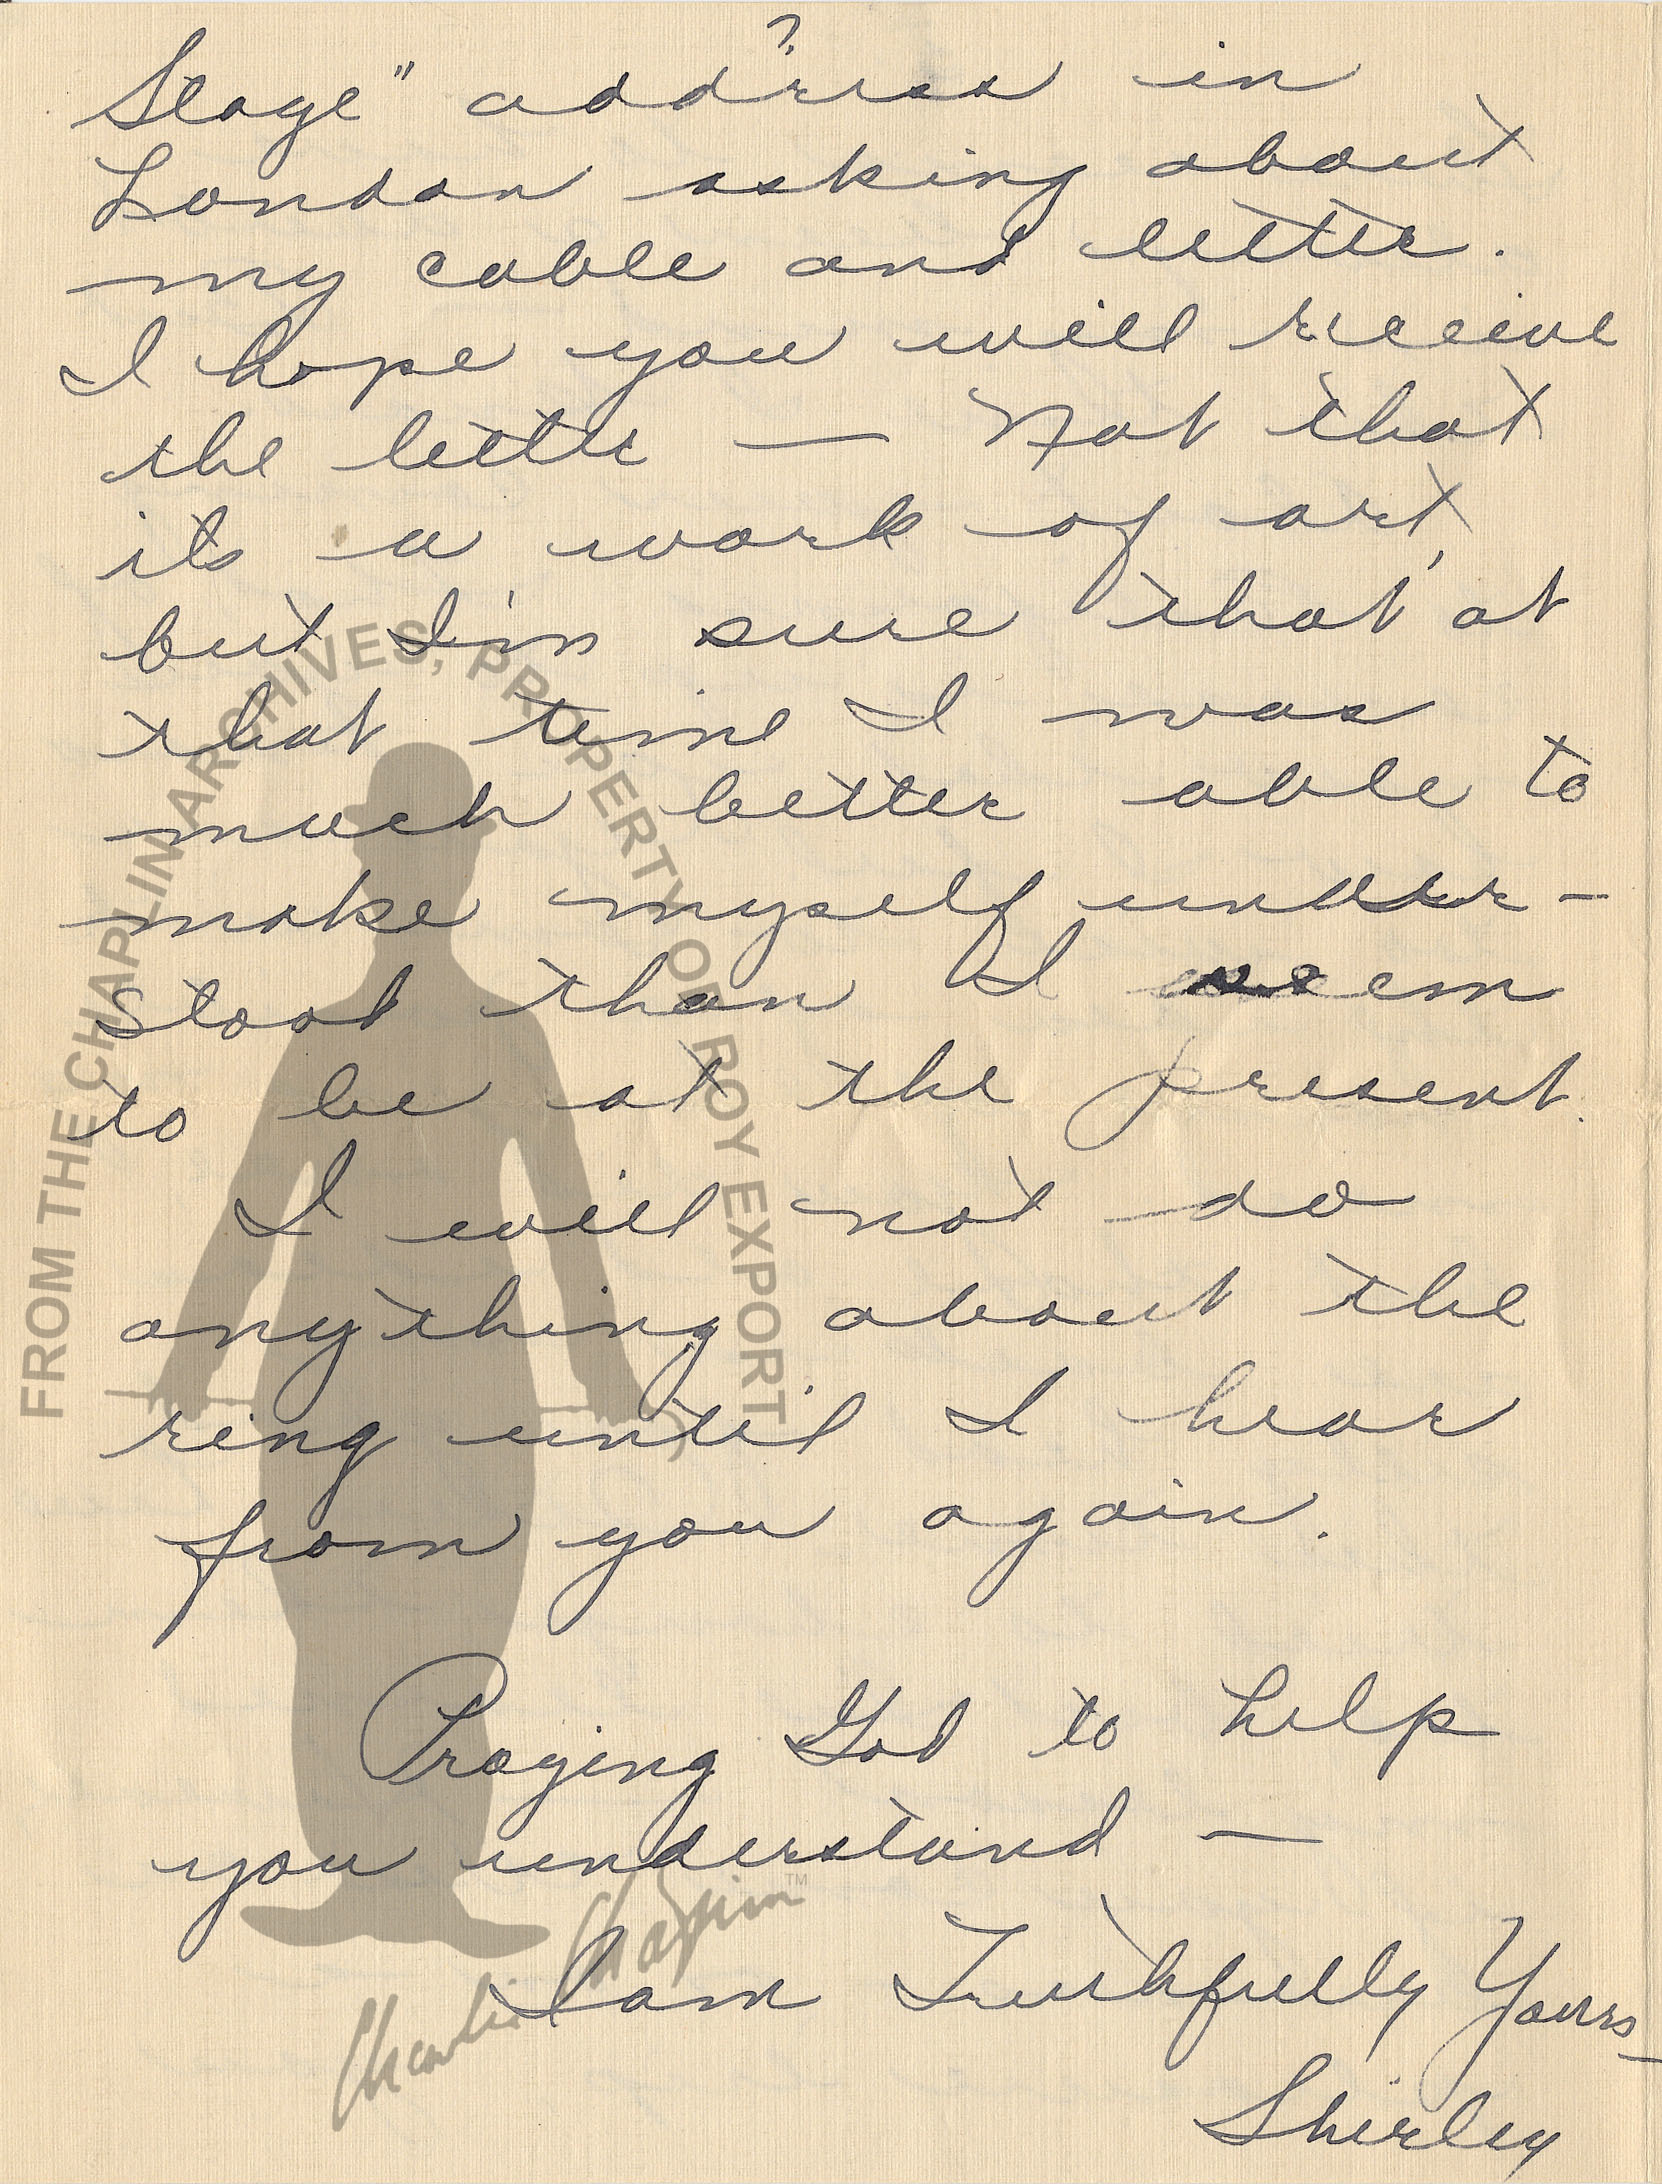 ?
Stage" address in
London asking about
my cable and letter.
I hope you will receive
the letter — Not that
its a work of art,
but I'm sure that at
that time I was
much better able to
make myself under-
stood than I seem
to be at the present.
I will not do
anything about the
ring until I hear
from you again.
Praying God to help
you understand —
I am Truthfully Yours—
Shirley
FROM THE CHAPLIN ARCHIVES, PROPERTY OF ROY EXPORT
Charlie Chaplin™